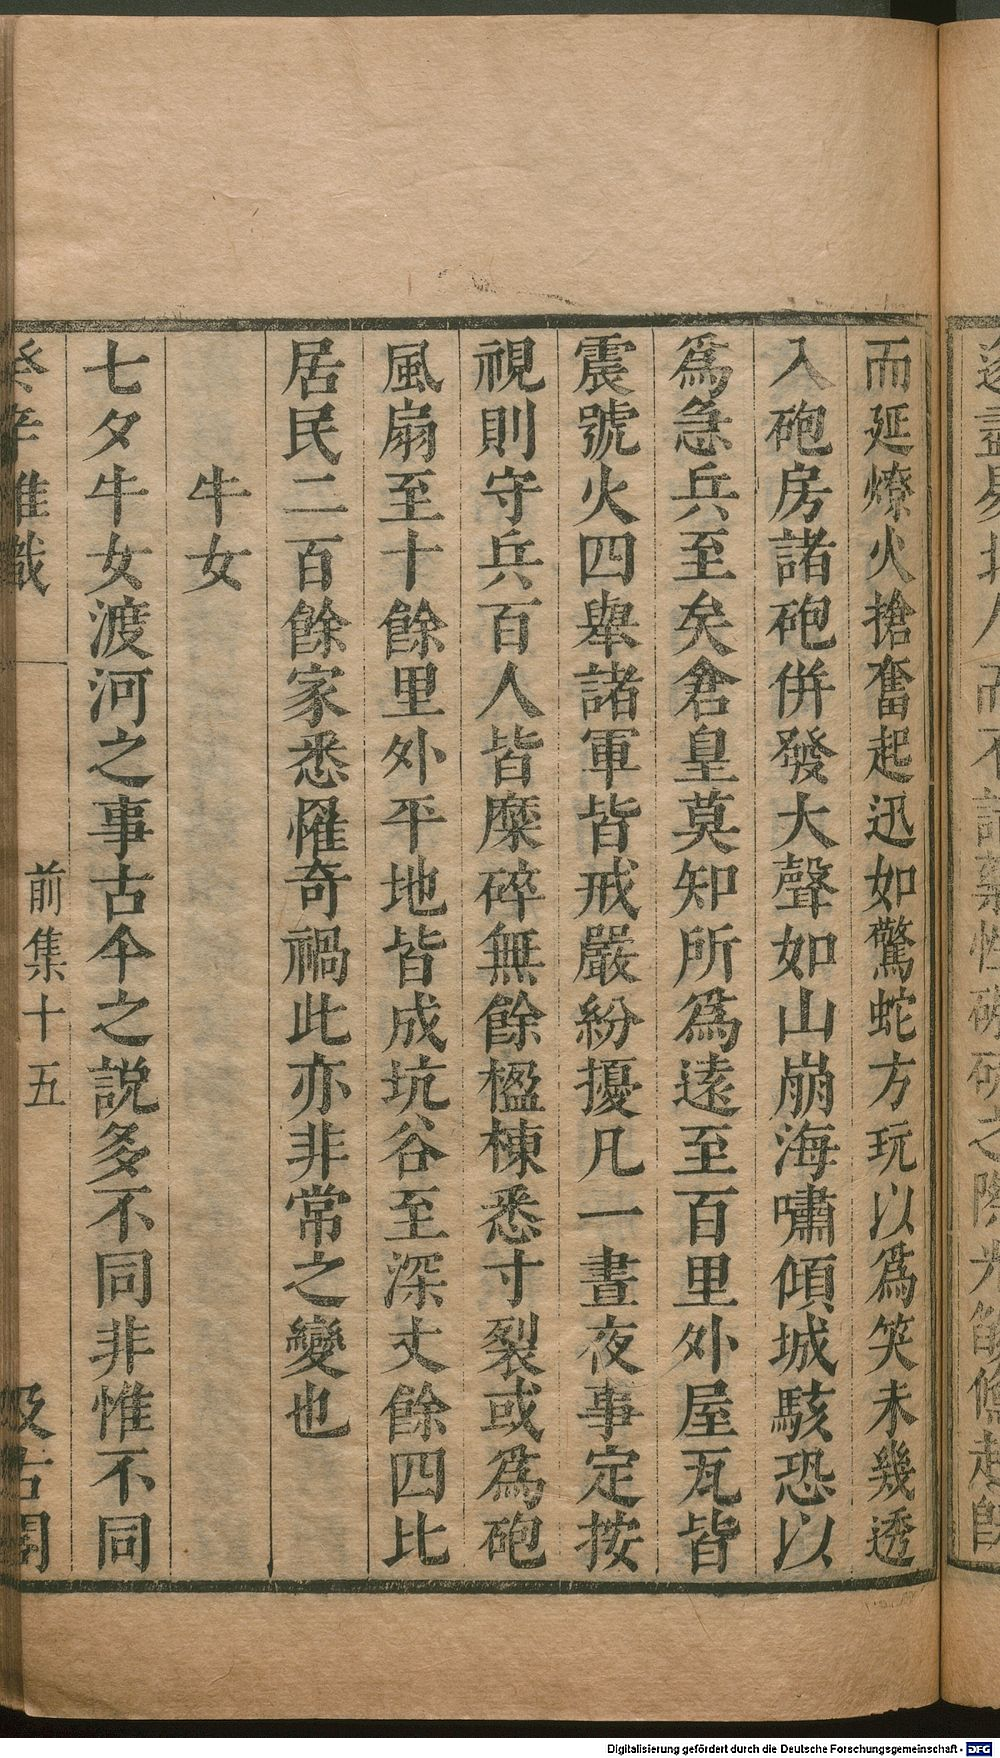 而延燎火搶奮起迅如驚蛇方玩以爲笑未幾透
入砲房諸砲併發大聲如山崩海嘯傾城駭恐以
爲急兵至矣倉皇莫知所爲遠至百里外屋瓦皆
震號火四舉諸軍皆戒嚴紛擾凡一晝夜事定按
視則守兵百人皆糜碎無餘楹棟悉寸裂或爲砲
風扇至十餘里外平地皆成坑谷至深丈餘四比
居民二百餘家悉罹奇禍此亦非常之變也
牛女
七夕牛女渡河之事古今之説多不同非惟不同
癸辛雜識
前集十五
汲古閣
Digitalisierung gefördert durch die Deutsche Forschungsgemeinschaft - DFG